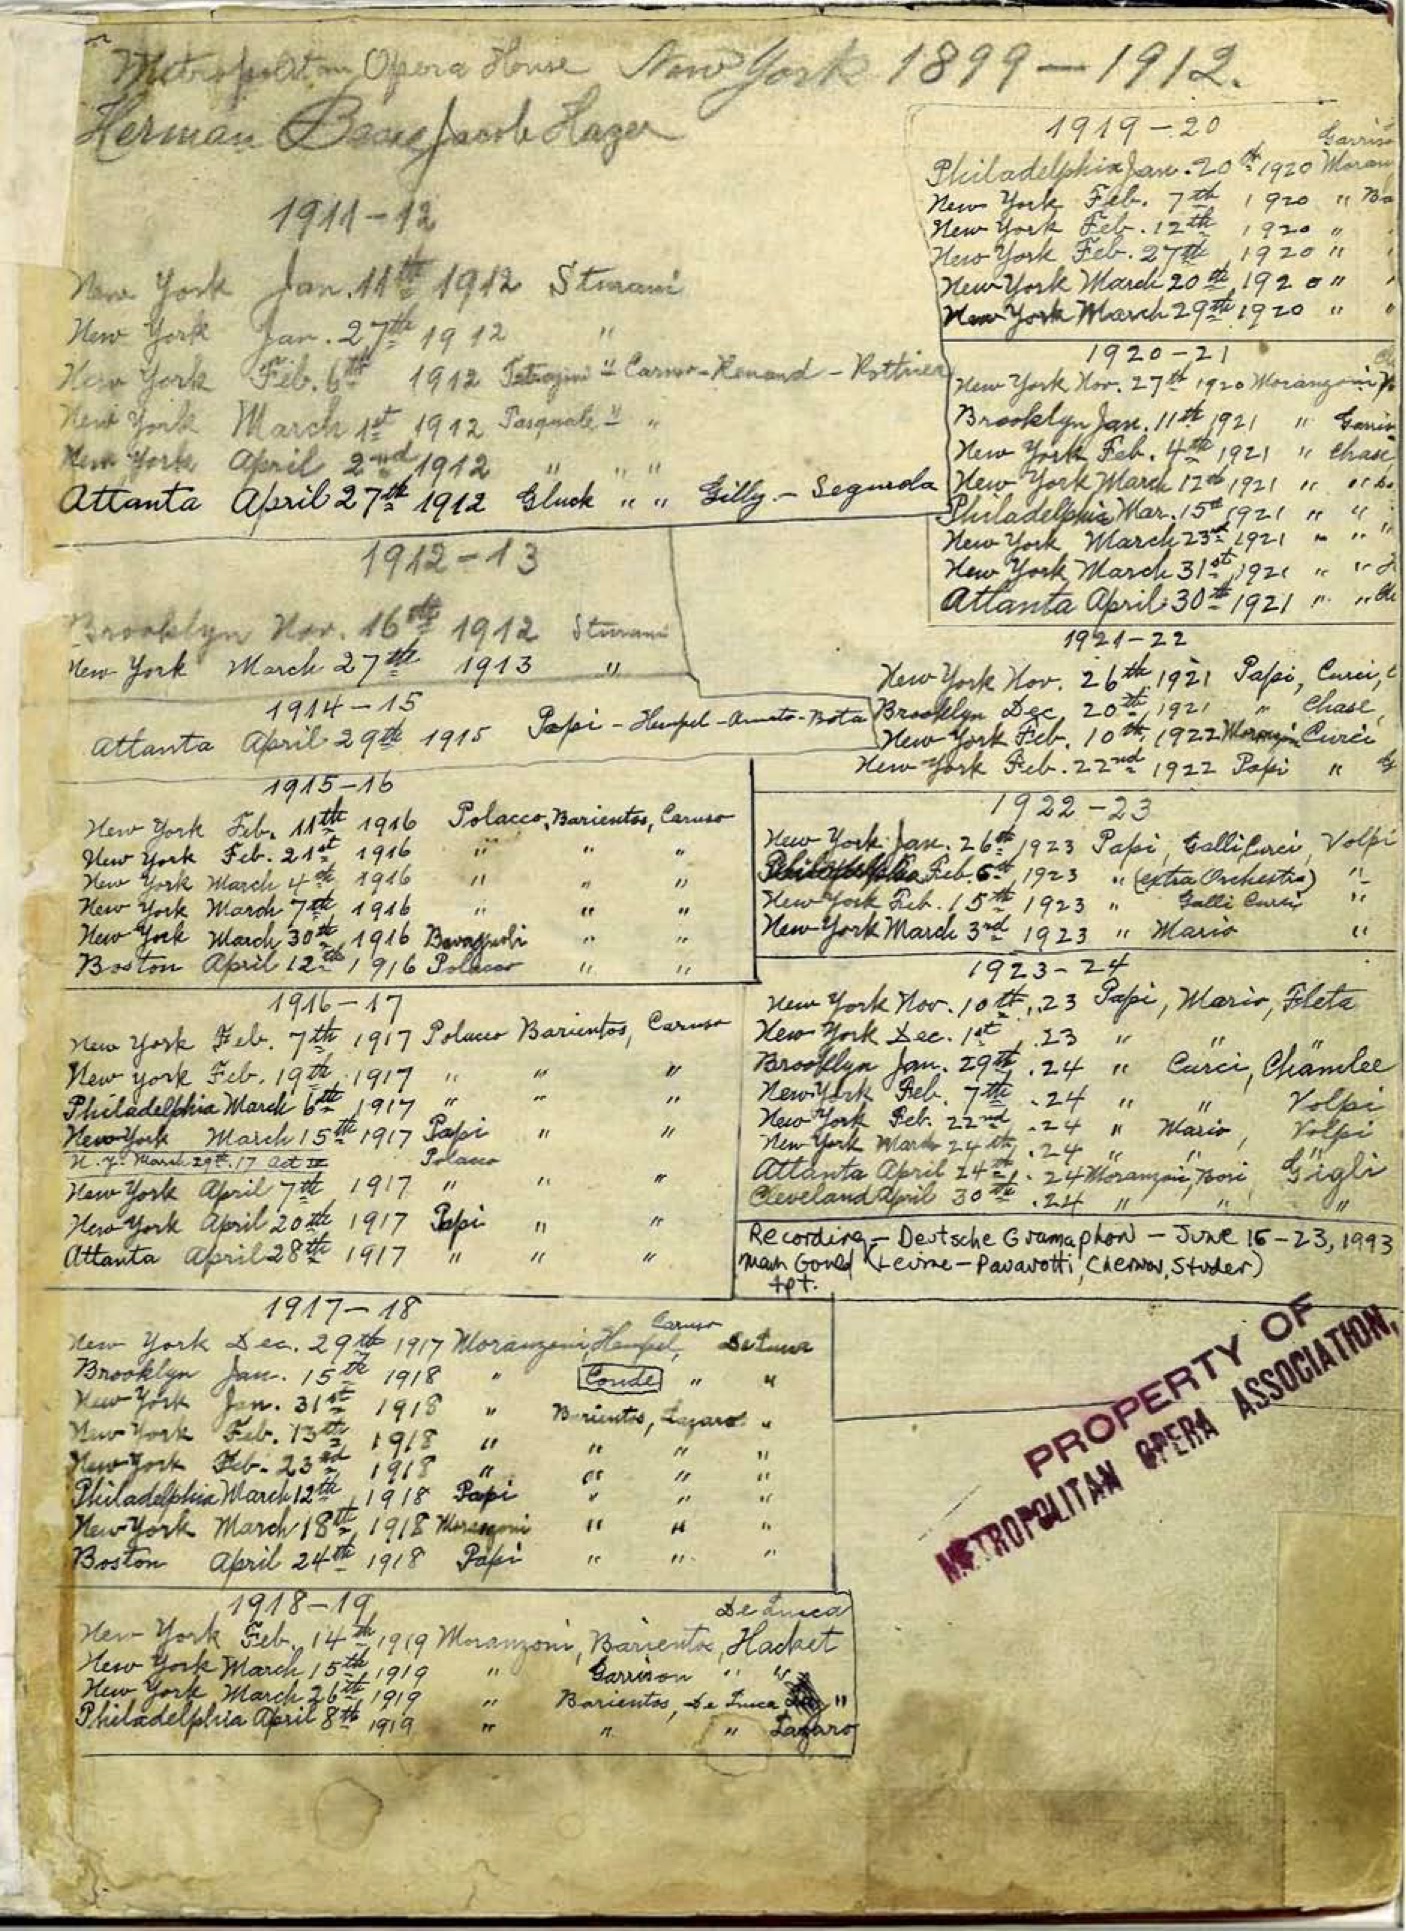 Metropolitan Opera House New York 1899-1912.
Herman Jacob Hager
1911-12
New York Jan. 11th 1912 Sturani
New York Jan. 27th 1912 "
New York Feb. 6th 1912 Tetrazini " Caruso-Renand-Rothier
New York March 1st 1912 Pasquale " "
New York April 2nd 1912 " " "
Atlanta April 27th 1912 Gluck " " Gilly - Segurola
1912-13
Brooklyn Nov. 16th 1912 Sturani
New York March 27th 1913 "
1914-15
Atlanta April 29th 1915 Papi-Hempel-Amato-Bota
1915-16
New York Feb. 11th 1916 Polacco, Barientos, Caruso
New York Feb. 21st 1916 " " "
New York March 4th 1916 " " "
New York March 7th 1916 " " "
New York March 30th 1916 Bavagnoli " "
Boston April 12th 1916 Polacco " "
1916-17
New York Feb. 7th 1917 Polacco Barientos, Caruso
New York Feb. 19th 1917 " " "
Philadelphia March 6th 1917 " " "
New York March 15th 1917 Papi " "
N.Y. March 29th 17 Act II Polacco
New York April 7th 1917 " " "
New York April 20th 1917 Papi " "
Atlanta April 28th 1917 " " "
1917-18
New York Dec. 29th 1917 Moranzoni, Hempel, Caruso De Luca
Brooklyn Jan. 15th 1918 " Conde " "
New York Jan. 31st 1918 " Barientos, Lazaro "
New York Feb. 13th 1918 " " " "
New York Feb. 23rd 1918 " " " "
Philadelphia March 12th 1918 Papi " " "
New York March 18th 1918 Moranzoni " " "
Boston April 24th 1918 Papi " " "
1918-19
De Luca
New York Feb. 14th 1919 Moranzoni, Barientos, Hacket
New York March 15th 1919 " Garrison " "
New York March 26th 1919 " Barientos, De Luca "
Philadelphia April 8th 1919 " " " Lazaro
1919-20
Garriso
Philadelphia Jan. 20th 1920 Moran
New York Feb. 7th 1920 " Ba
New York Feb. 12th 1920 "
New York Feb. 27th 1920 "
New York March 20th 1920 "
New York March 29th 1920 "
1920-21
New York Nov. 27th 1920 Moranzoni
Brooklyn Jan. 11th 1921 " Garris
New York Feb. 4th 1921 " Chase,
New York March 12th 1921 " "
Philadelphia Mar. 15th 1921 " "
New York March 23rd 1921 " " "
New York March 31st 1921 " "
Atlanta April 30th 1921 " "
1921-22
New York Nov. 26th 1921 Papi, Curci,
Brooklyn Dec 20th 1921 " Chase,
New York Feb. 10th, 1922 Moranzoni Curci
New York Feb. 22nd 1922 Papi "
1922-23
New York Jan. 26th 1923 Papi, Galli Curci, Volpi
Philadelphia Feb. 6th 1923 " (extra Orchestra) "
New York Feb. 15th 1923 " Galli Curci "
New York March 3rd 1923 " Mario "
1923-24
New York Nov. 10th, .23 Papi, Mario, Fleta
New York Dec. 1st, .23 " " "
Brooklyn Jan. 29th, .24 " Curci, Chamlee
New York Feb. 7th .24 " " Volpi
New York Feb. 22nd, .24 " Mario, Volpi
New York March 24th, .24 " " "
Atlanta April 24th, .24 Moranzoni, Bori Gigli
Cleveland April 30th .24 " " "
Recording - Deutsche Gramaphon - June 16-23, 1993
Mark Gould (Levine-Pavarotti, Chernov, Studer)
tpt.
PROPERTY OF
METROPOLITAN OPERA ASSOCIATION,